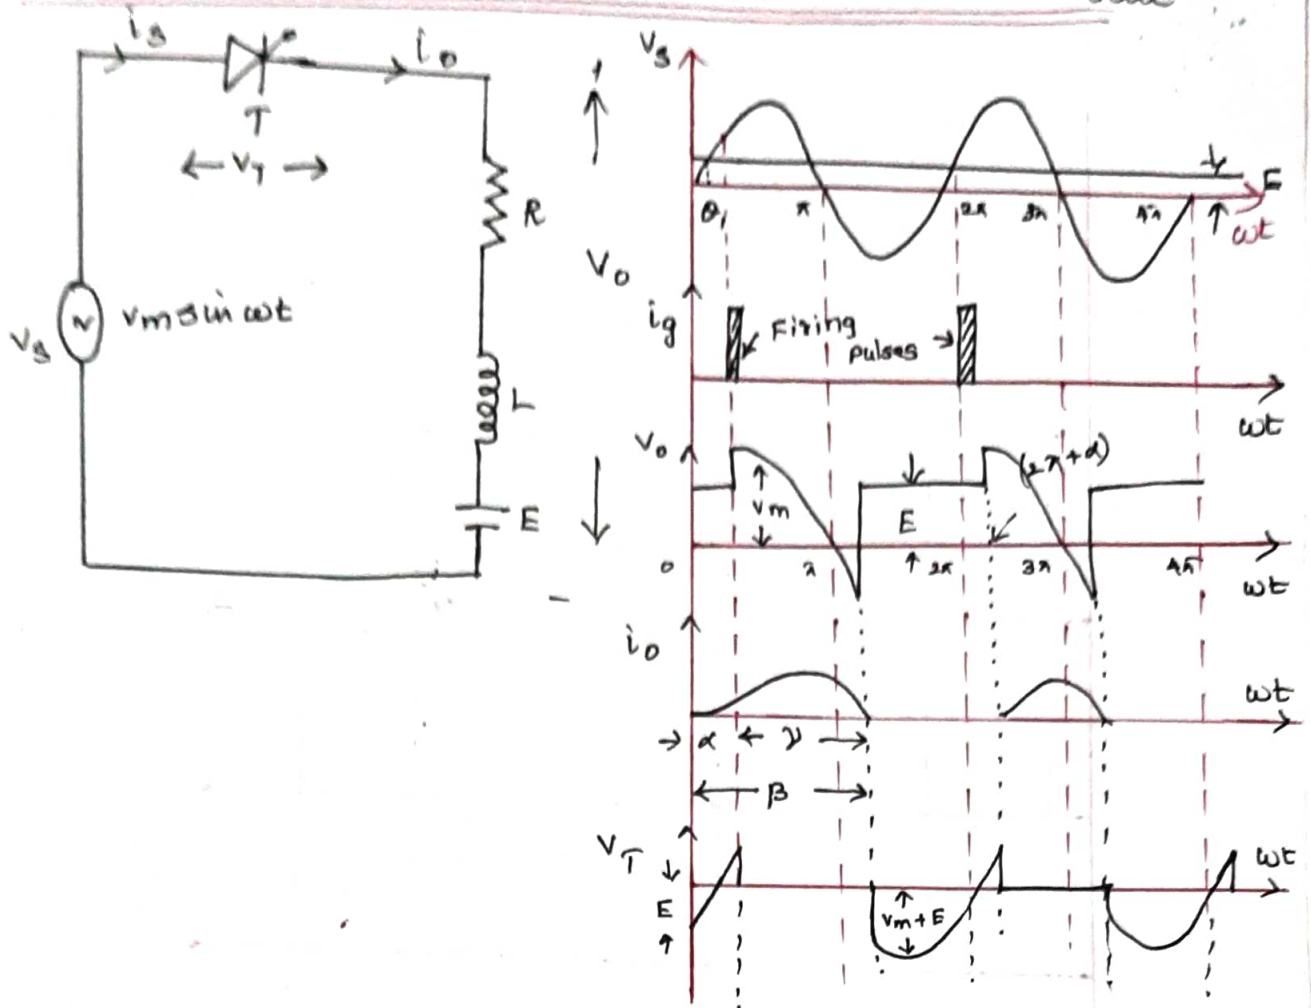 i_s
i_o
T
← V_T →
R
V_s
~
Vm sin ωt
L
E
+
V_o
-
V_s
E
θ₁
π
2π
3π
4π
ωt
i_g
Firing
pulses
ωt
V_o
Vm
E
(2π+α)
o
π
2π
3π
4π
ωt
i_o
ωt
→ α ← γ →
← β →
V_T
E
Vm+E
ωt